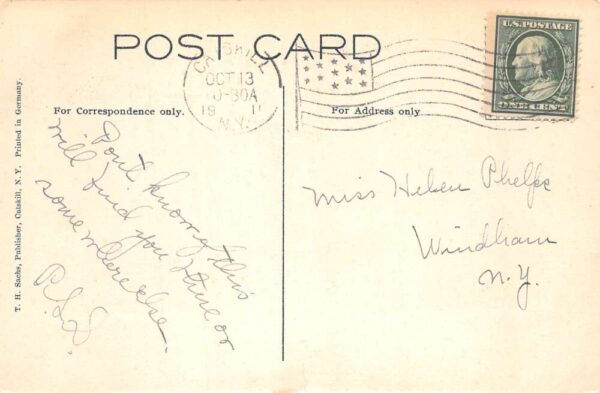 POST CARD
CATSKILL
OCT 13
10-30A
1911
N.Y.
U.S. POSTAGE
ONE CENT
For Correspondence only.
For Address only
T. H. Sachs, Publisher, Catskill, N. Y. Printed in Germany.
Don't know if this
will find you home or
somewhere else.
Miss Helen Phelps
Windham
N.Y.